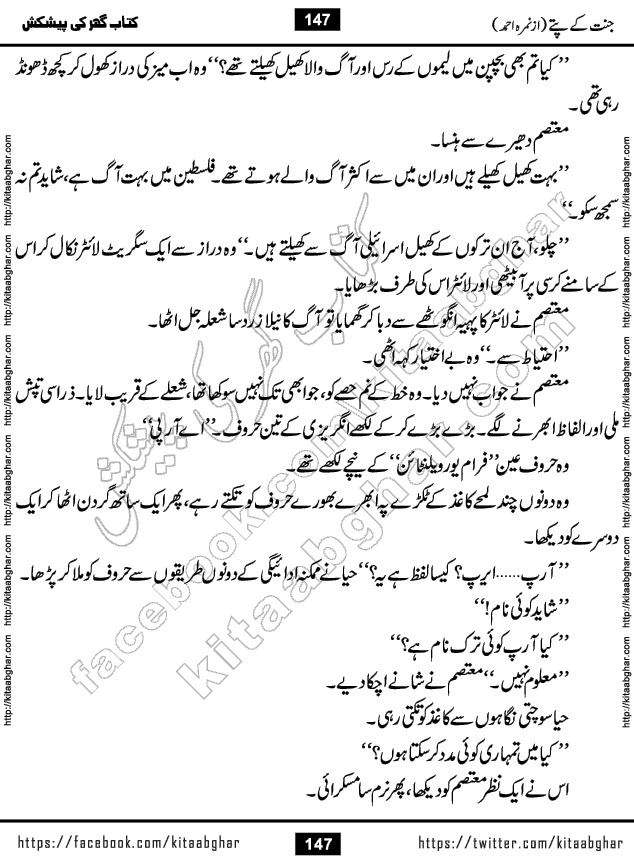 جنت کے پتے (از نمرہ احمد)
147
کتاب گھر کی پیشکش
’’ کیا تم بھی بچپن میں لیموں کے رس اور آگ والا کھیل کھیلتے تھے؟‘‘ وہ اب میز کی دراز کھول کر کچھ ڈھونڈ
رہی تھی۔
معتصم دھیرے سے ہنسا۔
’’بہت کھیل کھیلے ہیں اور ان میں سے اکثر آگ والے ہوتے تھے۔ فلسطین میں بہت آگ ہے، شاید تم نہ
سمجھ سکو۔‘‘
’’چلو، آج ان ترکوں کے کھیل اسرائیلی آگ سے کھیلتے ہیں۔‘‘ وہ دراز سے ایک سگریٹ لائٹر نکال کر اس
کے سامنے کرسی پر آ بیٹھی اور لائٹر اس کی طرف بڑھایا۔
معتصم نے لائٹر کا پہیہ انگوٹھے سے دبا کر گھمایا تو آگ کا نیلا زرد سا شعلہ جل اٹھا۔
’’احتیاط سے۔‘‘ وہ بے اختیار کہہ اٹھی۔
معتصم نے جواب نہیں دیا۔ وہ خط کے نم حصے کو، جو ابھی تک نہیں سوکھا تھا، شعلے کے قریب لایا۔ ذرا سی تپش
ملی اور الفاظ ابھرنے لگے۔ بڑے بڑے کر کے لکھے انگریزی کے تین حروف۔ ’’اے آر پی‘‘
وہ حروف عین ’’فرام یور ویلنٹائن‘‘ کے نیچے لکھے تھے۔
وہ دونوں چند لمحے کاغذ کے ٹکڑے پہ ابھرے بھورے حروف کو تکتے رہے، پھر ایک ساتھ گردن اٹھا کر ایک
دوسرے کو دیکھا۔
’’ آرپ...... ایرپ؟ کیسا لفظ ہے یہ؟‘‘ حیا نے ممکنہ ادائیگی کے دونوں طریقوں سے حروف کو ملا کر پڑھا۔
’’شاید کوئی نام!‘‘
’’ کیا آرپ کوئی ترک نام ہے؟‘‘
’’معلوم نہیں۔‘‘ معتصم نے شانے اچکا دیے۔
حیا سوچتی نگاہوں سے کاغذ کو تکتی رہی۔
’’ کیا میں تمہاری کوئی مدد کر سکتا ہوں؟‘‘
اس نے ایک نظر معتصم کو دیکھا، پھر نرم سا مسکرائی۔
http://kitaabghar.com http://kitaabghar.com http://kitaabghar.com http://kitaabghar.com http://kitaabghar.com http://kitaabghar.com
http://kitaabghar.com http://kitaabghar.com http://kitaabghar.com http://kitaabghar.com http://kitaabghar.com http://kitaabghar.com
کتاب گھر کی پیشکش
kitaabghar.com
facebook.com/kitaabghar
https://facebook.com/kitaabghar
147
https://twitter.com/kitaabghar